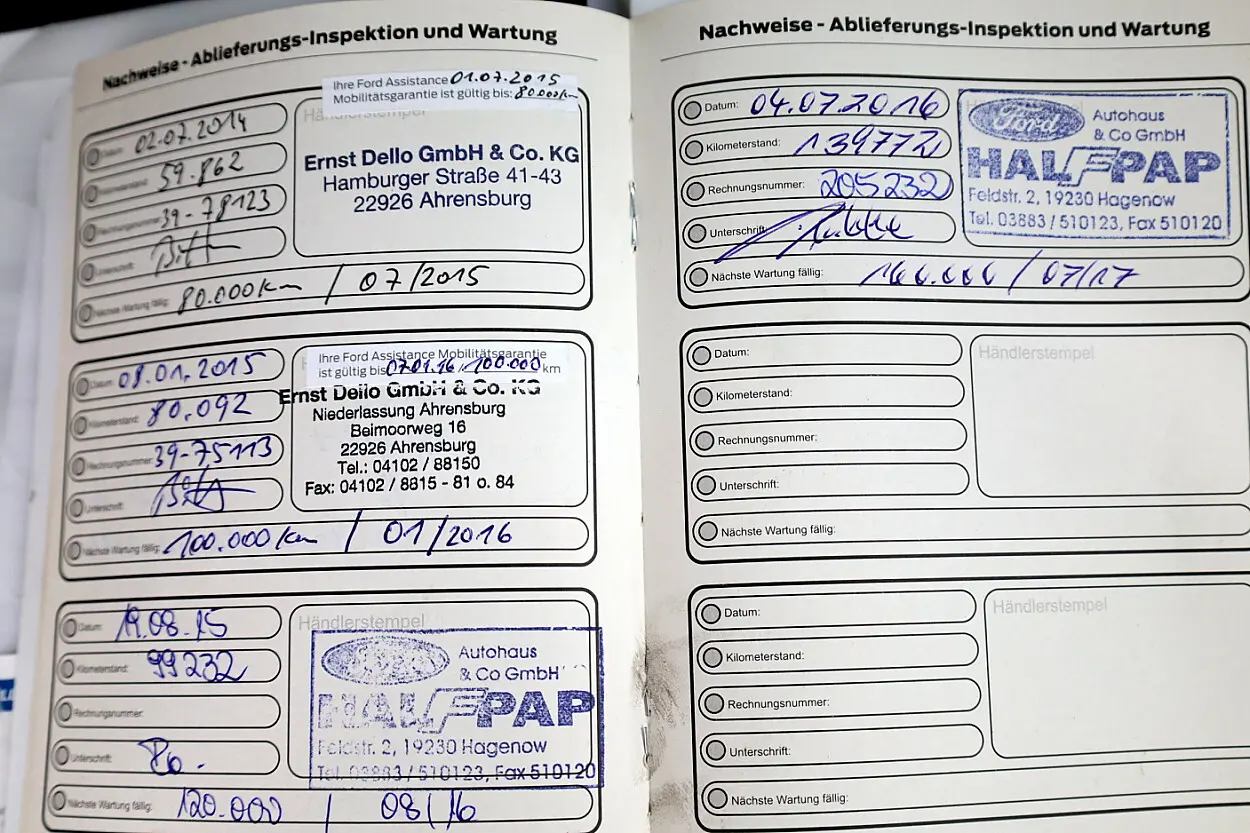 Nachweise - Ablieferungs-Inspektion und Wartung
Ihre Ford Assistance 01.07.2015
Mobilitätsgarantie ist gültig bis: 80.000km
Händlerstempel
Datum: 02.07.2014
Kilometerstand: 59.862
Rechnungsnummer: 39-78123
Unterschrift:
Ernst Dello GmbH & Co. KG
Hamburger Straße 41-43
22926 Ahrensburg
Nächste Wartung fällig: 80.000km / 07/2015
Ihre Ford Assistance Mobilitätsgarantie
ist gültig bis 07.01.16/100.000 km
Datum: 08.01.2015
Kilometerstand: 80.092
Rechnungsnummer: 39-75113
Unterschrift:
Ernst Dello GmbH & Co. KG
Niederlassung Ahrensburg
Beimoorweg 16
22926 Ahrensburg
Tel.: 04102 / 88150
Fax: 04102 / 8815 - 81 o. 84
Nächste Wartung fällig: 100.000km / 01/2016
Händlerstempel
Datum: 19.08.15
Kilometerstand: 99232
Rechnungsnummer:
Unterschrift:
Ford
Autohaus
& Co GmbH
HALFPAP
Feldstr. 2, 19230 Hagenow
Tel. 03883 / 510123, Fax 510120
Nächste Wartung fällig: 120.000 / 08/16
Nachweise - Ablieferungs-Inspektion und Wartung
Datum: 04.07.2016
Kilometerstand: 139772
Rechnungsnummer: 205232
Unterschrift:
Ford
Autohaus
& Co GmbH
HALFPAP
Feldstr. 2, 19230 Hagenow
Tel. 03883 / 510123, Fax 510120
Nächste Wartung fällig: 160.000 / 07/17
Datum:
Kilometerstand:
Rechnungsnummer:
Unterschrift:
Händlerstempel
Nächste Wartung fällig:
Datum:
Kilometerstand:
Rechnungsnummer:
Unterschrift:
Händlerstempel
Nächste Wartung fällig: